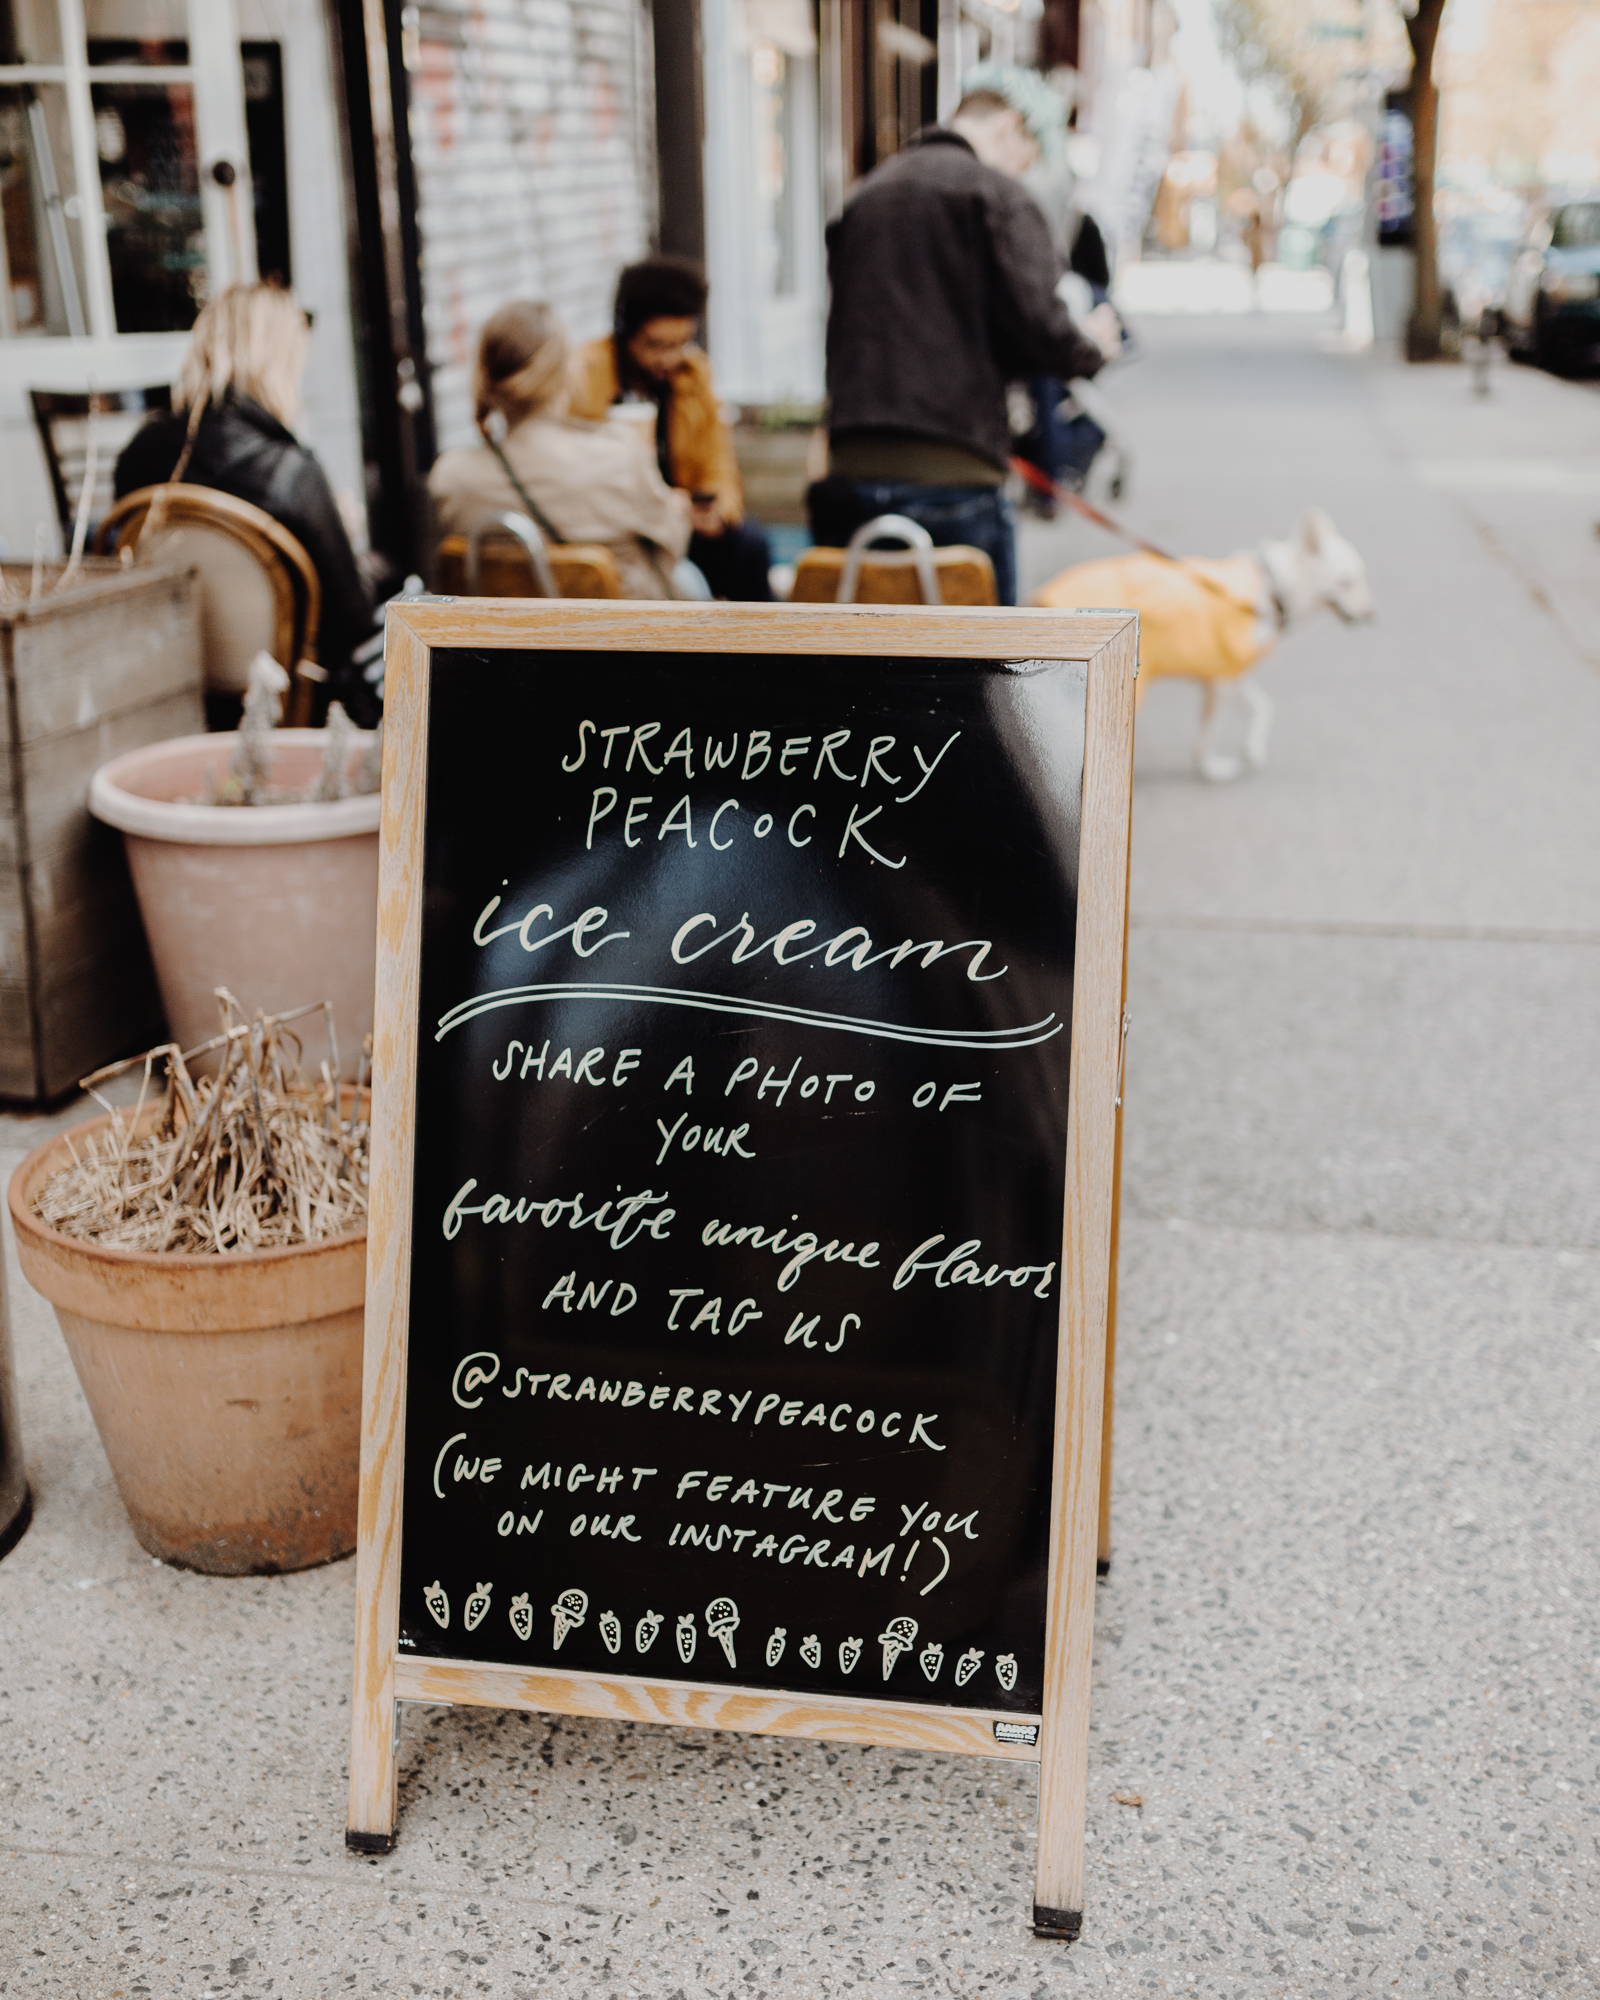 STRAWBERRY
PEACOCK
ice cream
SHARE A PHOTO OF
YOUR
favorite unique flavor
AND TAG US
@STRAWBERRYPEACOCK
(WE MIGHT FEATURE YOU
ON OUR INSTAGRAM!)
AARCO